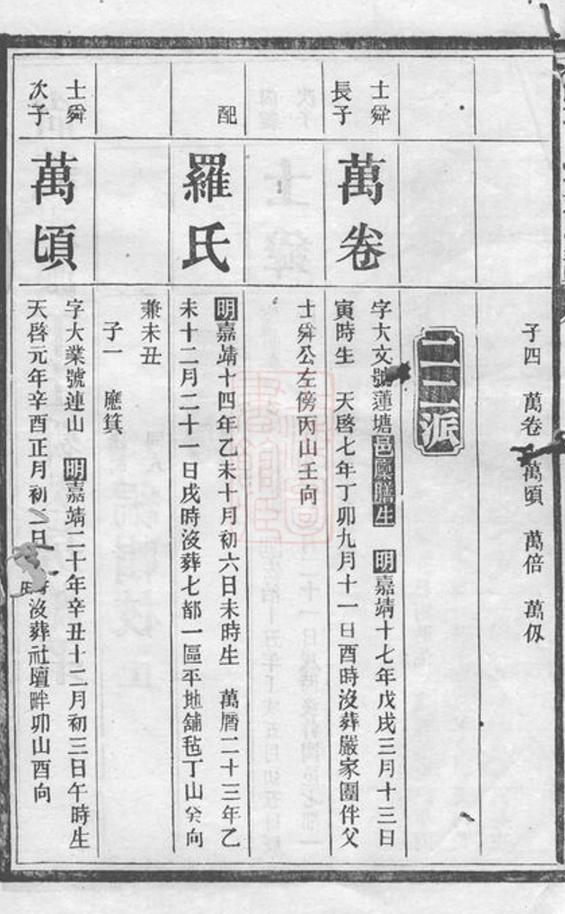 子四 萬卷 萬頃 萬倍 萬仭
二三派
士舜
長子
萬卷
字大文號蓮塘邑廩膳生 明嘉靖十七年戊戌三月十三日
寅時生 天啓七年丁卯九月十一日酉時沒葬嚴家團伴父
士舜公左傍丙山壬向
配
羅氏
明嘉靖十四年乙未十月初六日未時生 萬曆二十三年乙
未十二月二十一日戌時沒葬七都一區平地舖毡丁山癸向
兼未丑
子一 應箕
士舜
次子
萬頃
字大業號連山 明嘉靖二十年辛丑十二月初三日午時生
天啓元年辛酉正月初二日 時沒葬社壇畔卯山酉向